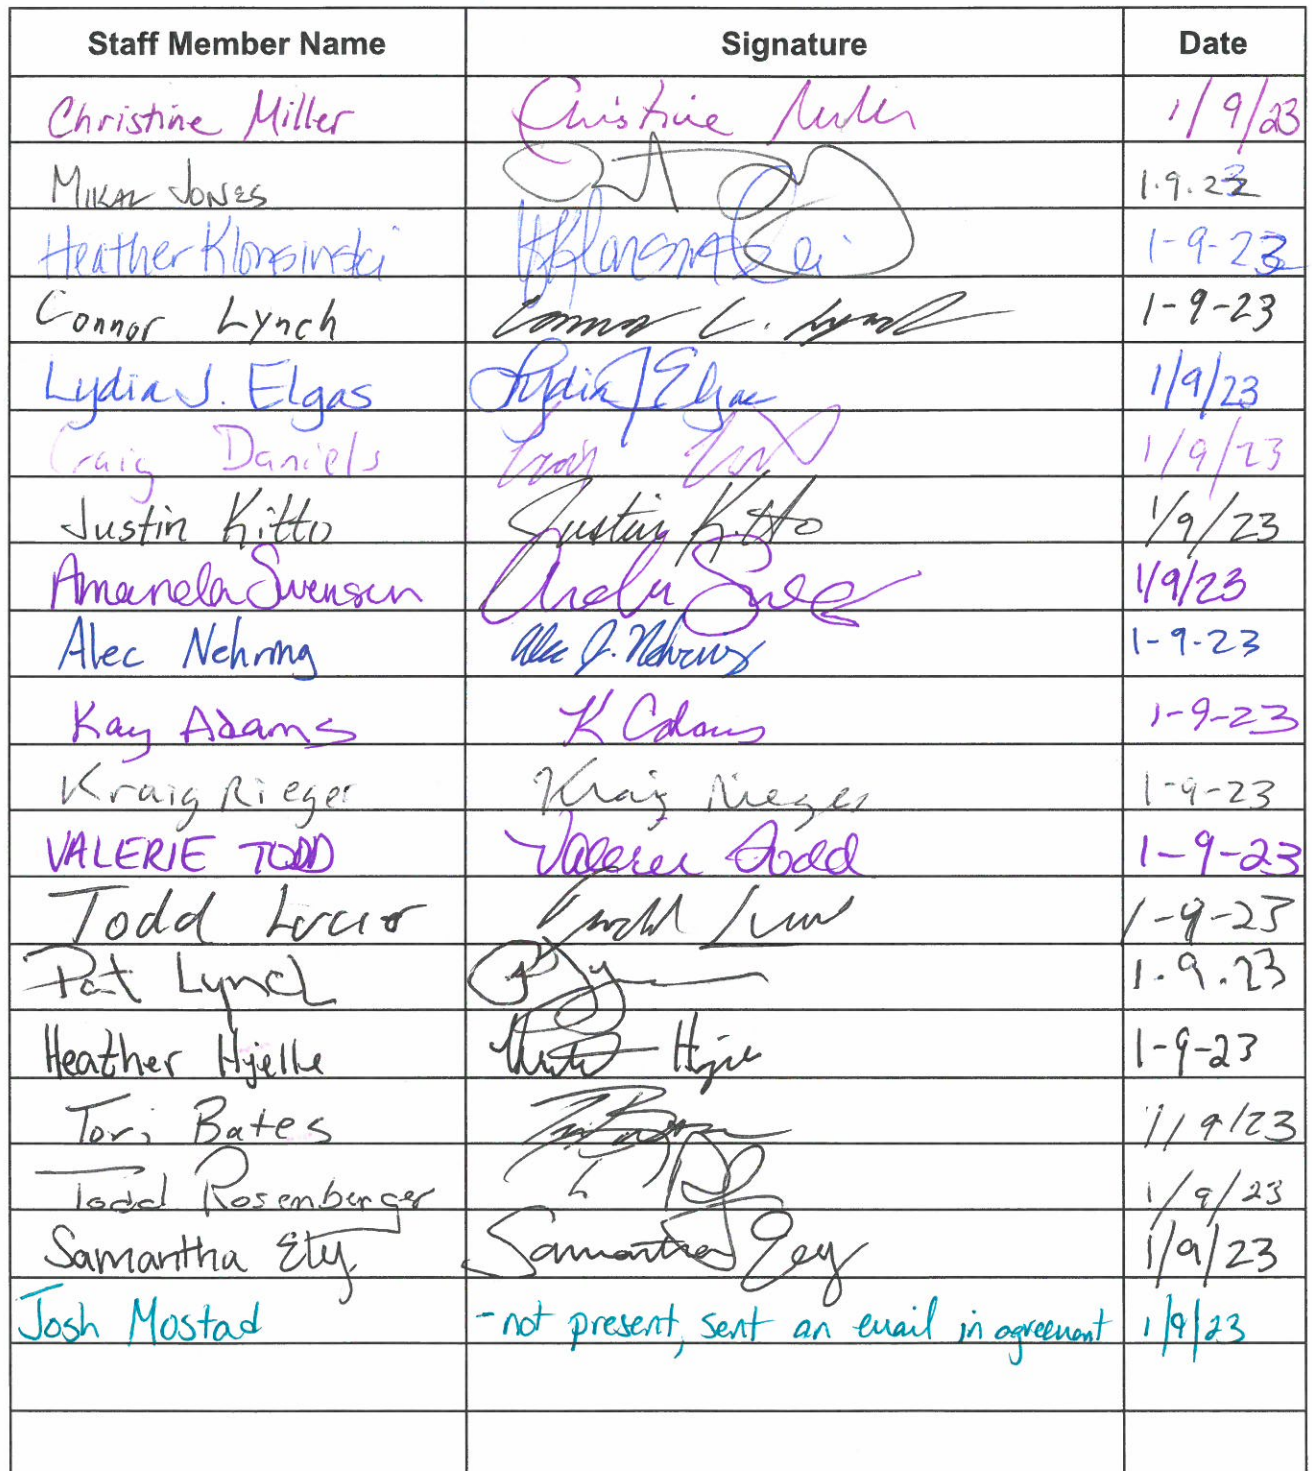 Staff Member Name Signature Date
Christine Miller Christine Miller 1/9/23
Mikal Jones 1.9.23
Heather Klonsinski HKlonsinski 1-9-23
Connor Lynch Connor C. Lynch 1-9-23
Lydia J. Elgas Lydia J Elgas 1/9/23
Craig Daniels 1/9/23
Justin Kitto Justin Kitto 1/9/23
Amanda Swensen 1/9/23
Alec Nehring Alec J. Nehring 1-9-23
Kay Adams K Adams 1-9-23
Kraig Rieger Kraig Rieger 1-9-23
VALERIE TODD Valerie Todd 1-9-23
Todd Lucio 1-9-23
Pat Lynch 1.9.23
Heather Hjelle 1-9-23
Tori Bates 1/9/23
Todd Rosenberger 1/9/23
Samantha Ety Samantha Ety 1/9/23
Josh Mostad - not present, sent an email in agreement 1/9/23